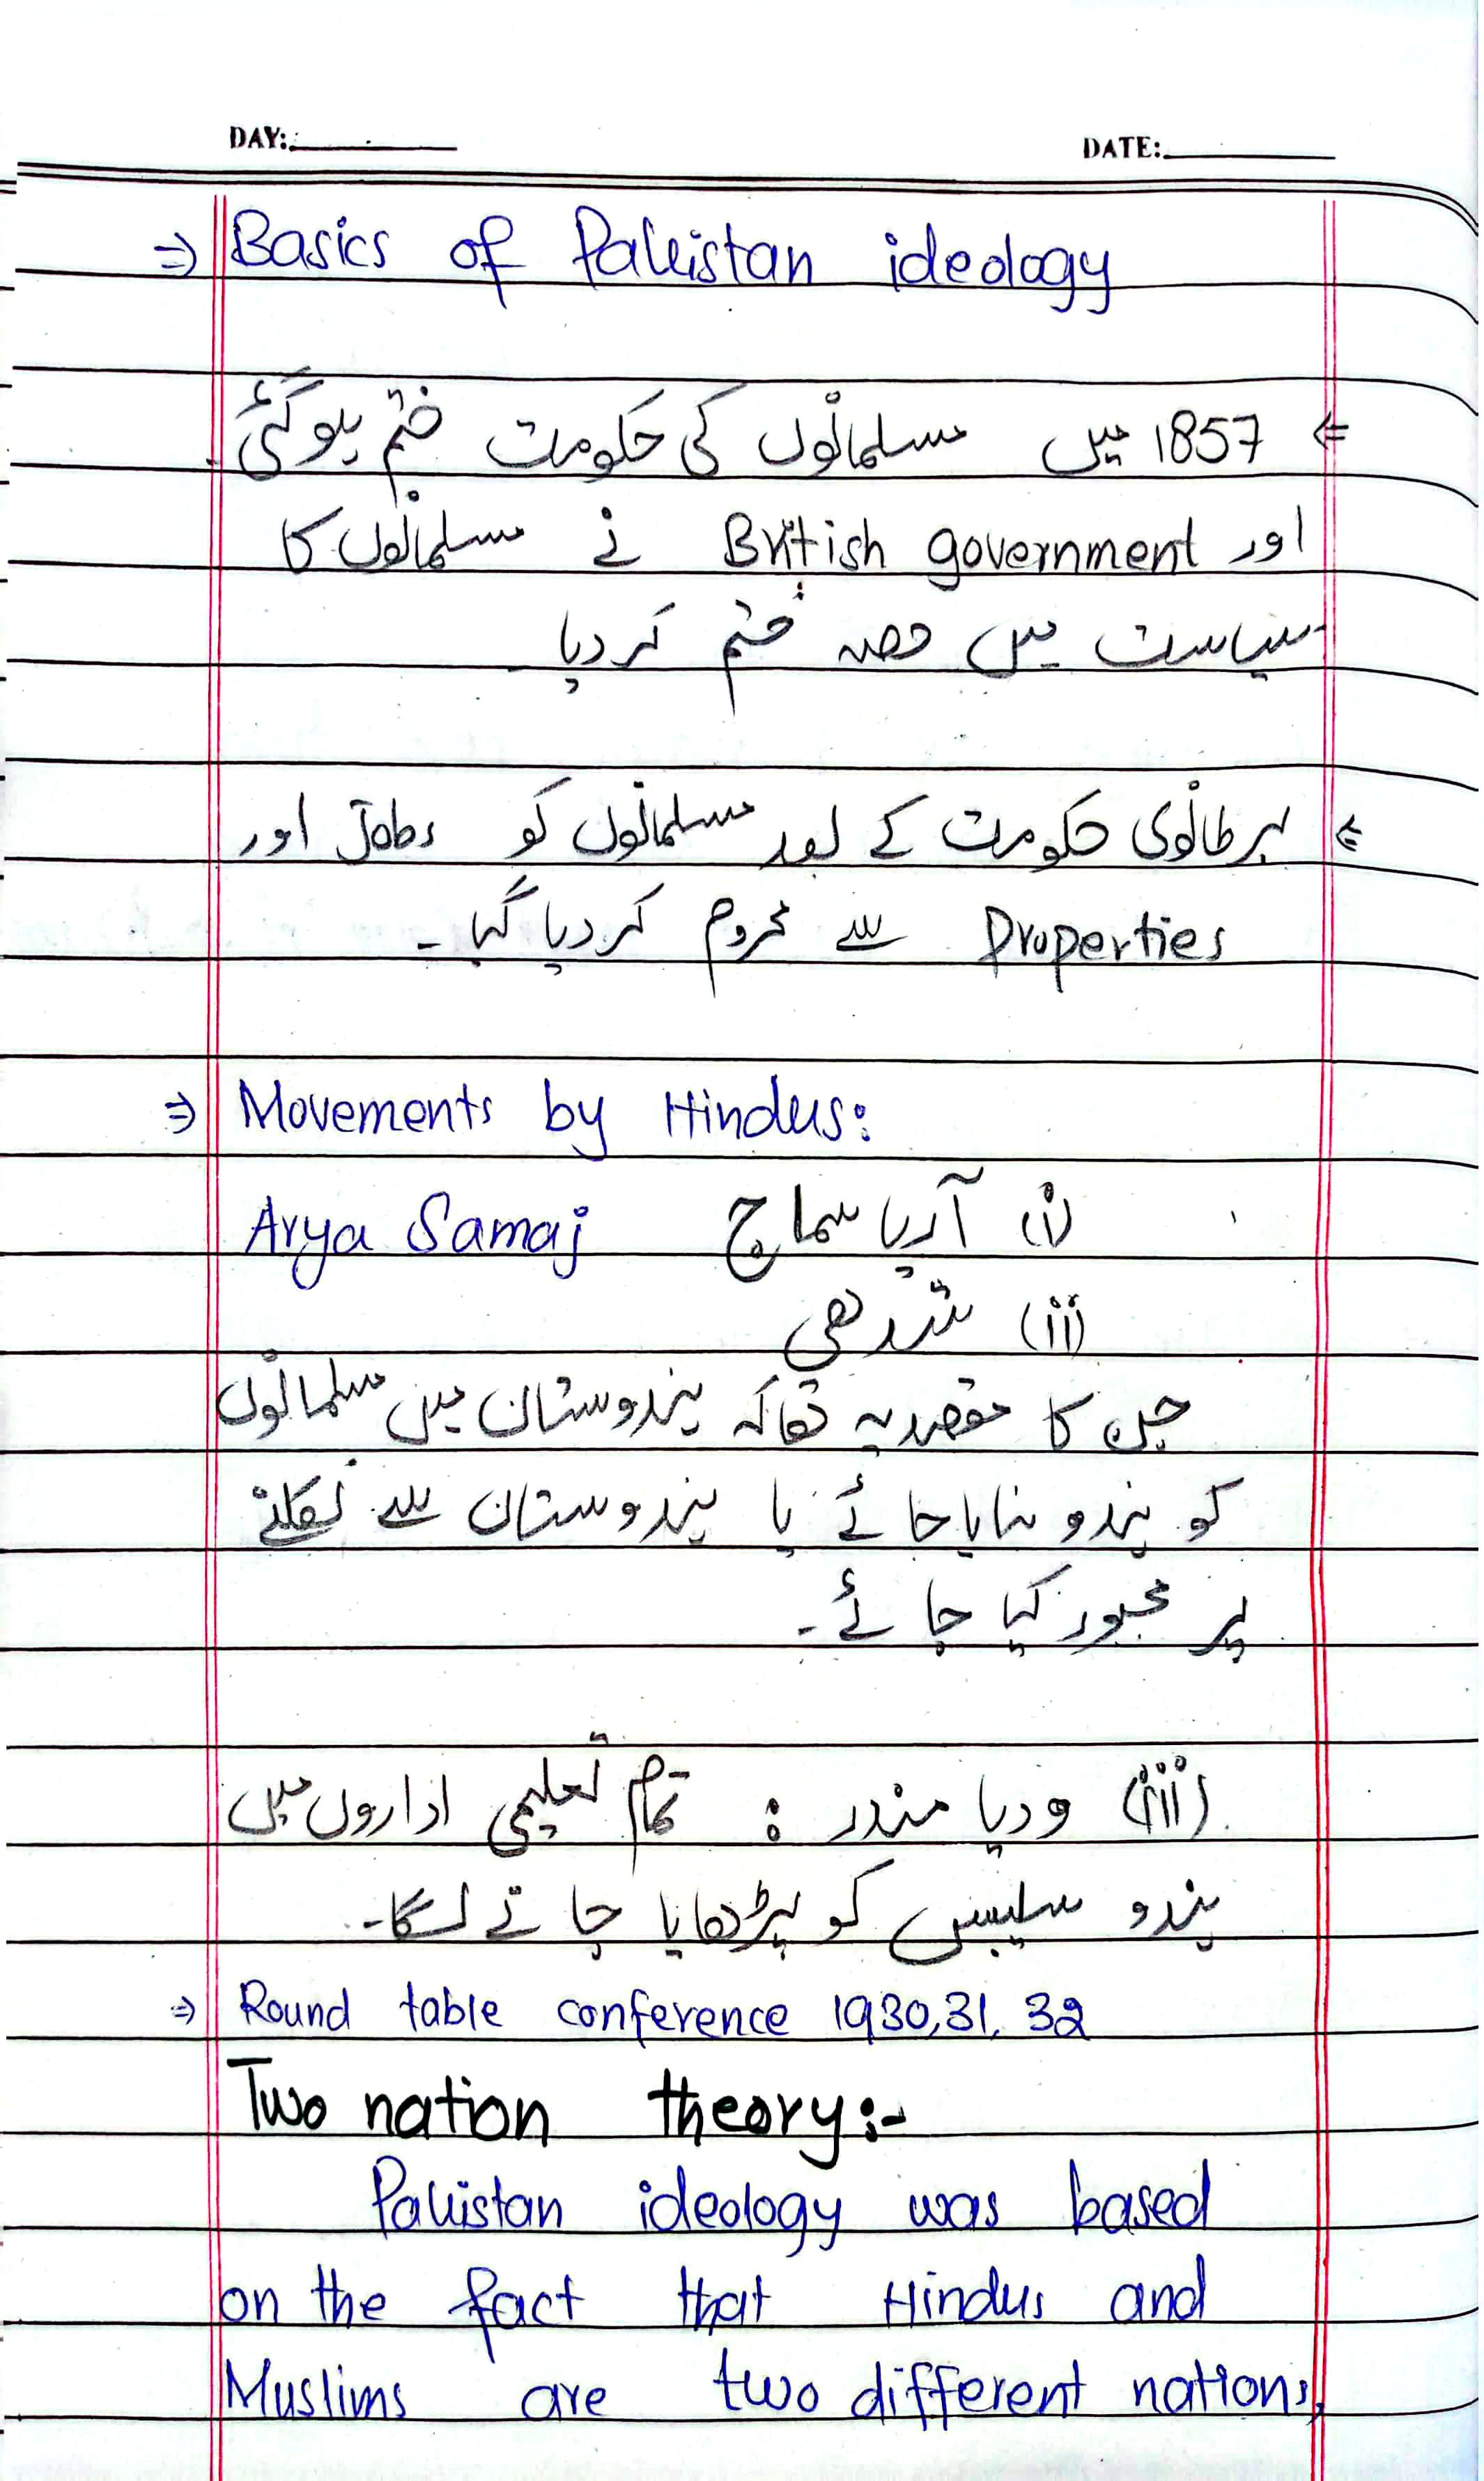 DAY:
DATE:
⇒ Basics of Pakistan ideology
⇐ 1857 میں مسلمانوں کی حکومت ختم ہوگئی۔
اور British government نے مسلمانوں کا
سیاست میں حصہ ختم کردیا۔
⇐ برطانوی حکومت کے بعد مسلمانوں کو Jobs اور
Properties سے محروم کردیا گیا۔
⇒ Movements by Hindus:
(i) آریا سماج Arya Samaj
(ii) شدھی
جس کا مقصد یہ تھا کہ ہندوستان میں مسلمانوں
کو ہندو بنایا جائے یا ہندوستان سے نکلنے
پر مجبور کیا جائے۔
(iii) ودیا مندر : تمام تعلیمی اداروں میں
ہندو سلیبس کو پڑھایا جانے لگا۔
⇒ Round table conference 1930, 31, 32
Two nation theory:-
Pakistan ideology was based
on the fact that Hindus and
Muslims are two different nations,